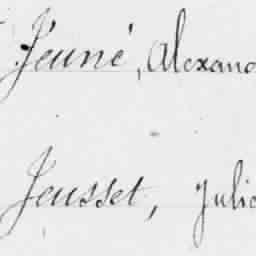 Jeuné, Alexand
Jeusset, Julie